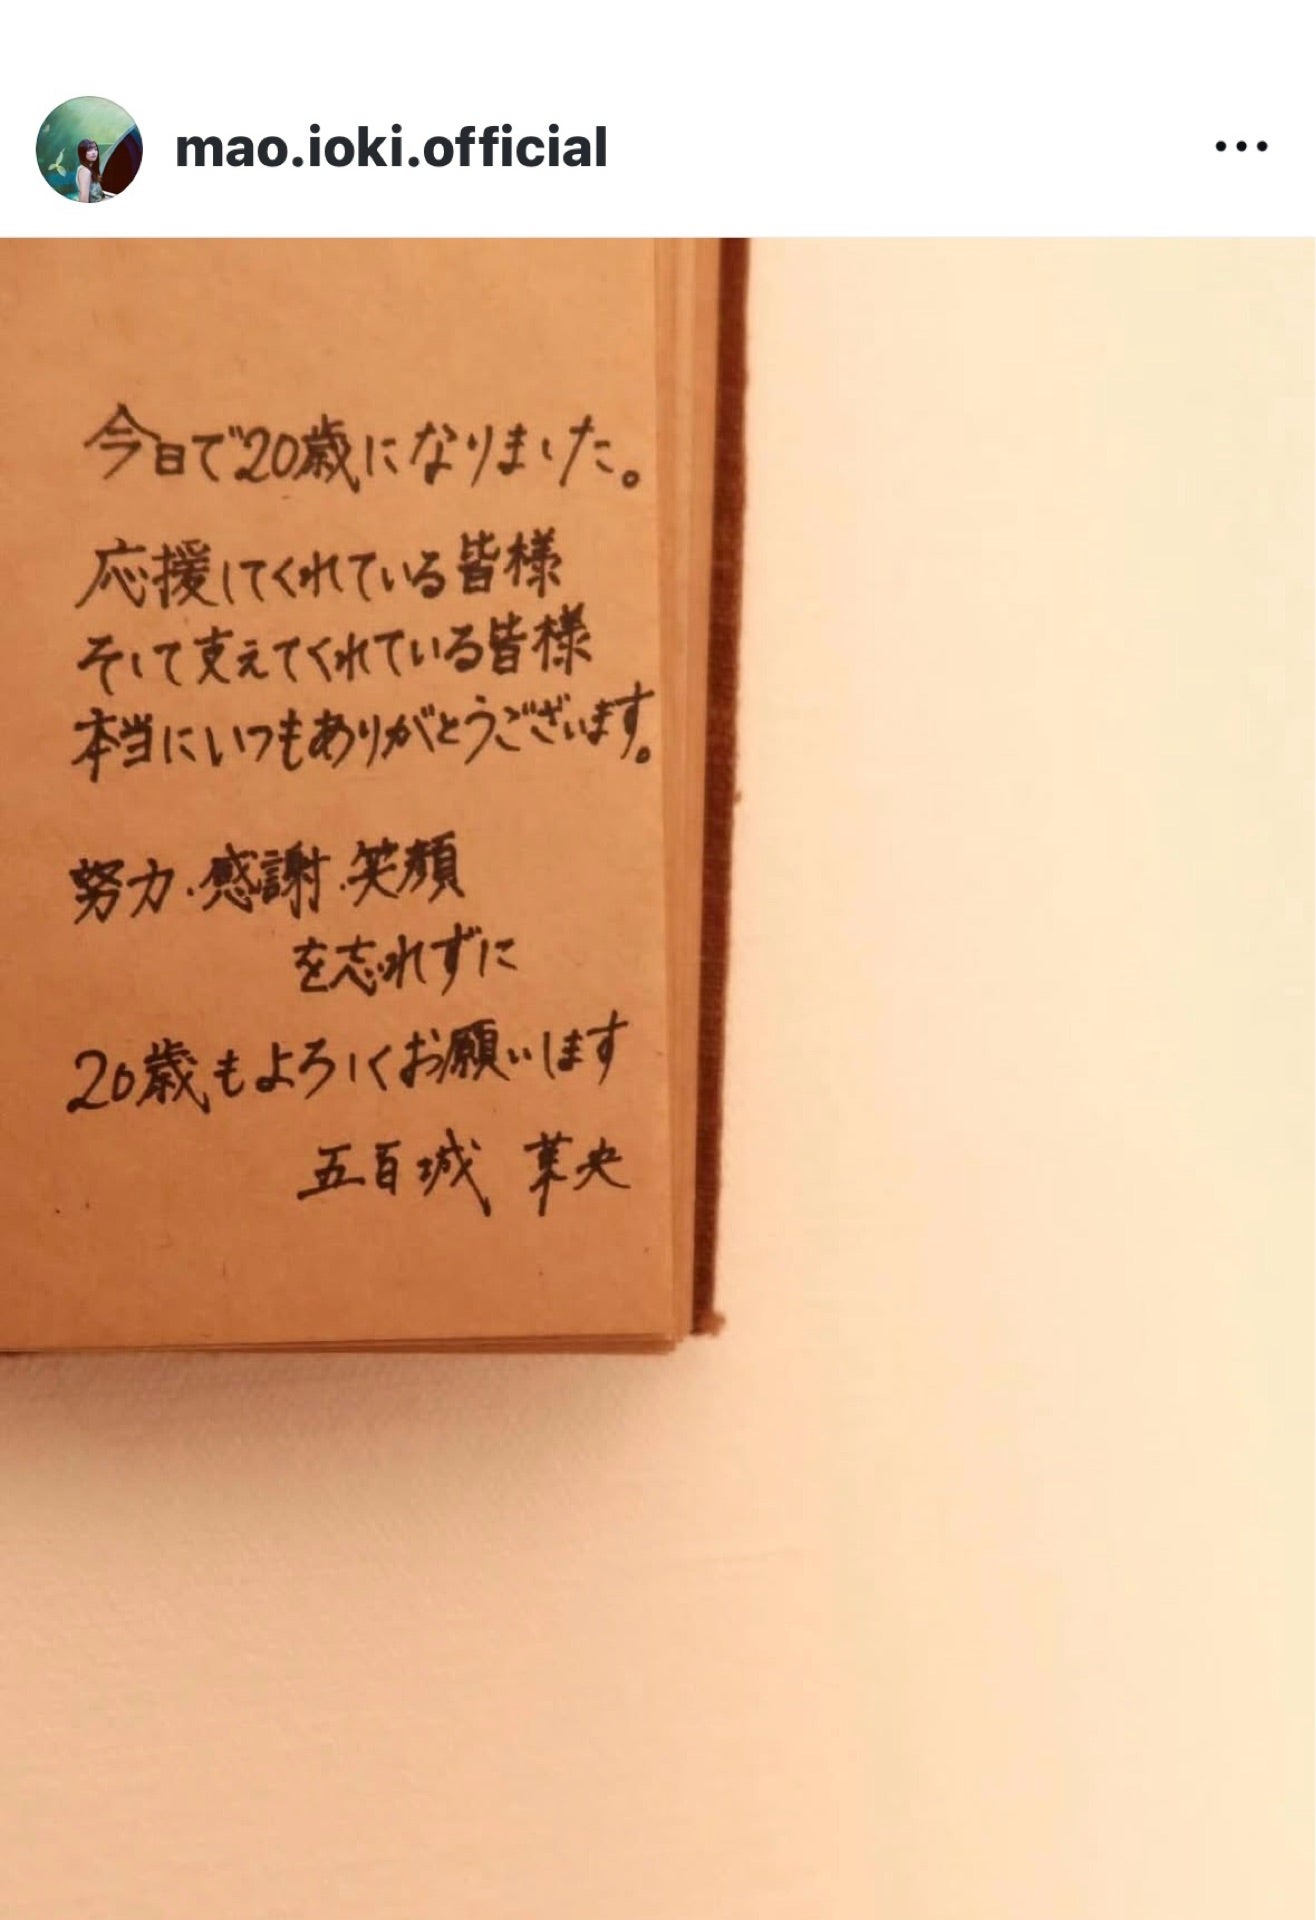 mao.ioki.official
今日で20歳になりました。
応援してくれている皆様
そして支えてくれている皆様
本当にいつもありがとうございます。
努力・感謝・笑顔
を忘れずに
20歳もよろしくお願いします
五百城 茉央